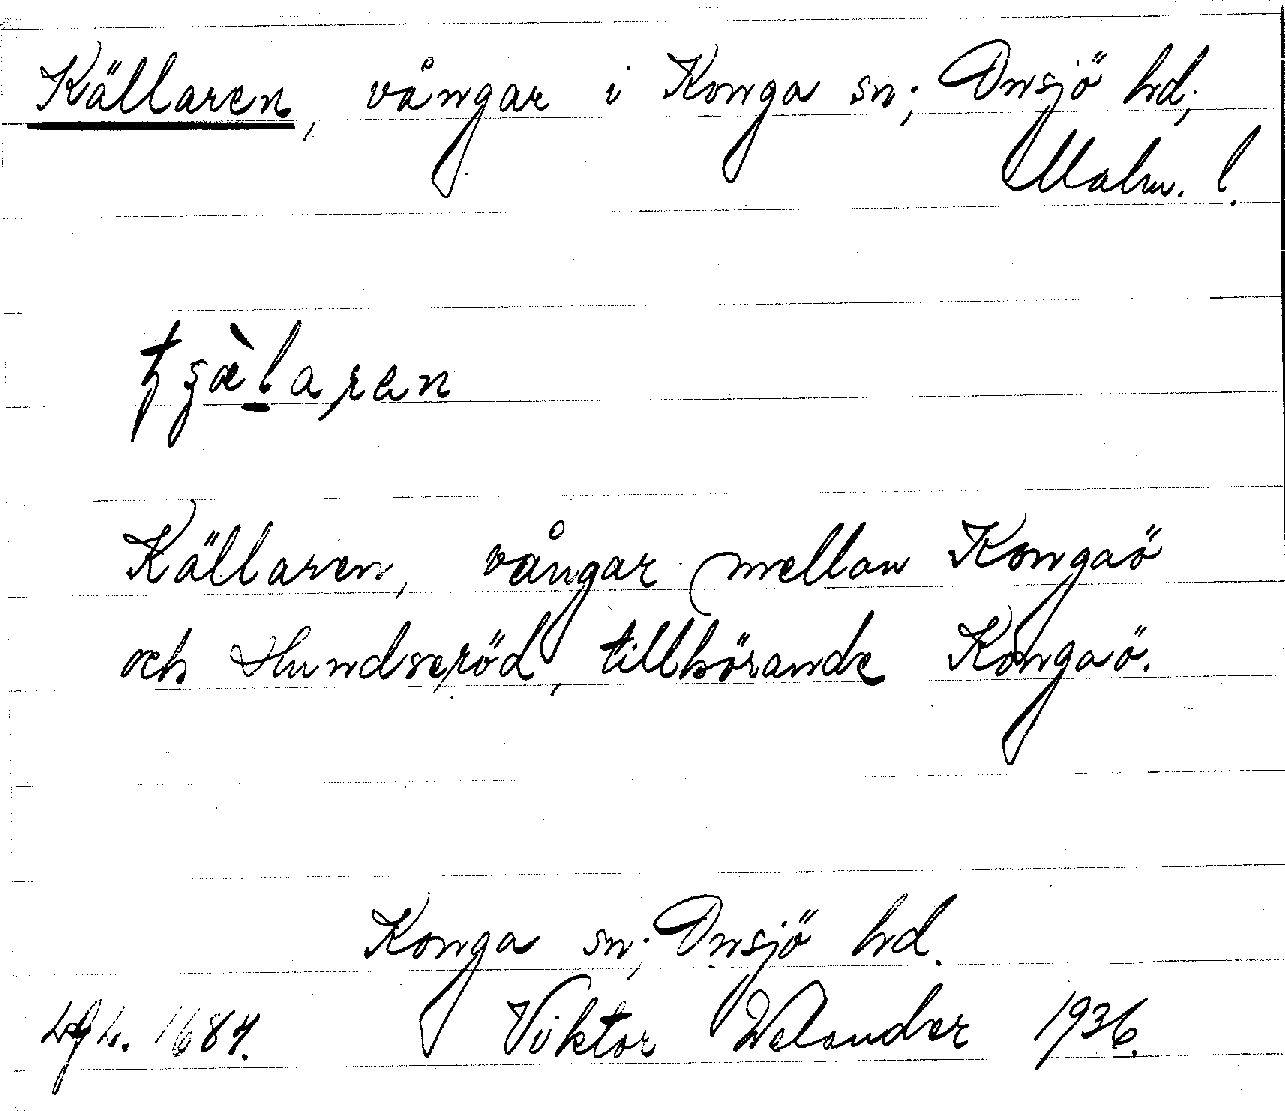 Källaren, vångar i Konga sn; Onsjö hd;
Malm. l.
Källaren, vångar mellan Kongaö
och Hundseröd, tillhörande Kongaö.
Konga sn; Onsjö hd.
1684. Viktor Welander 1936.